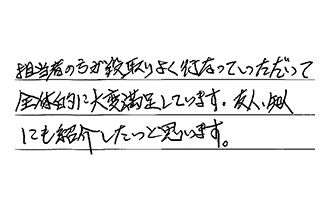 担当者の方が段取りよく行なっていただいて
全体的に大変満足しています。友人、知人
にも紹介したいと思います。